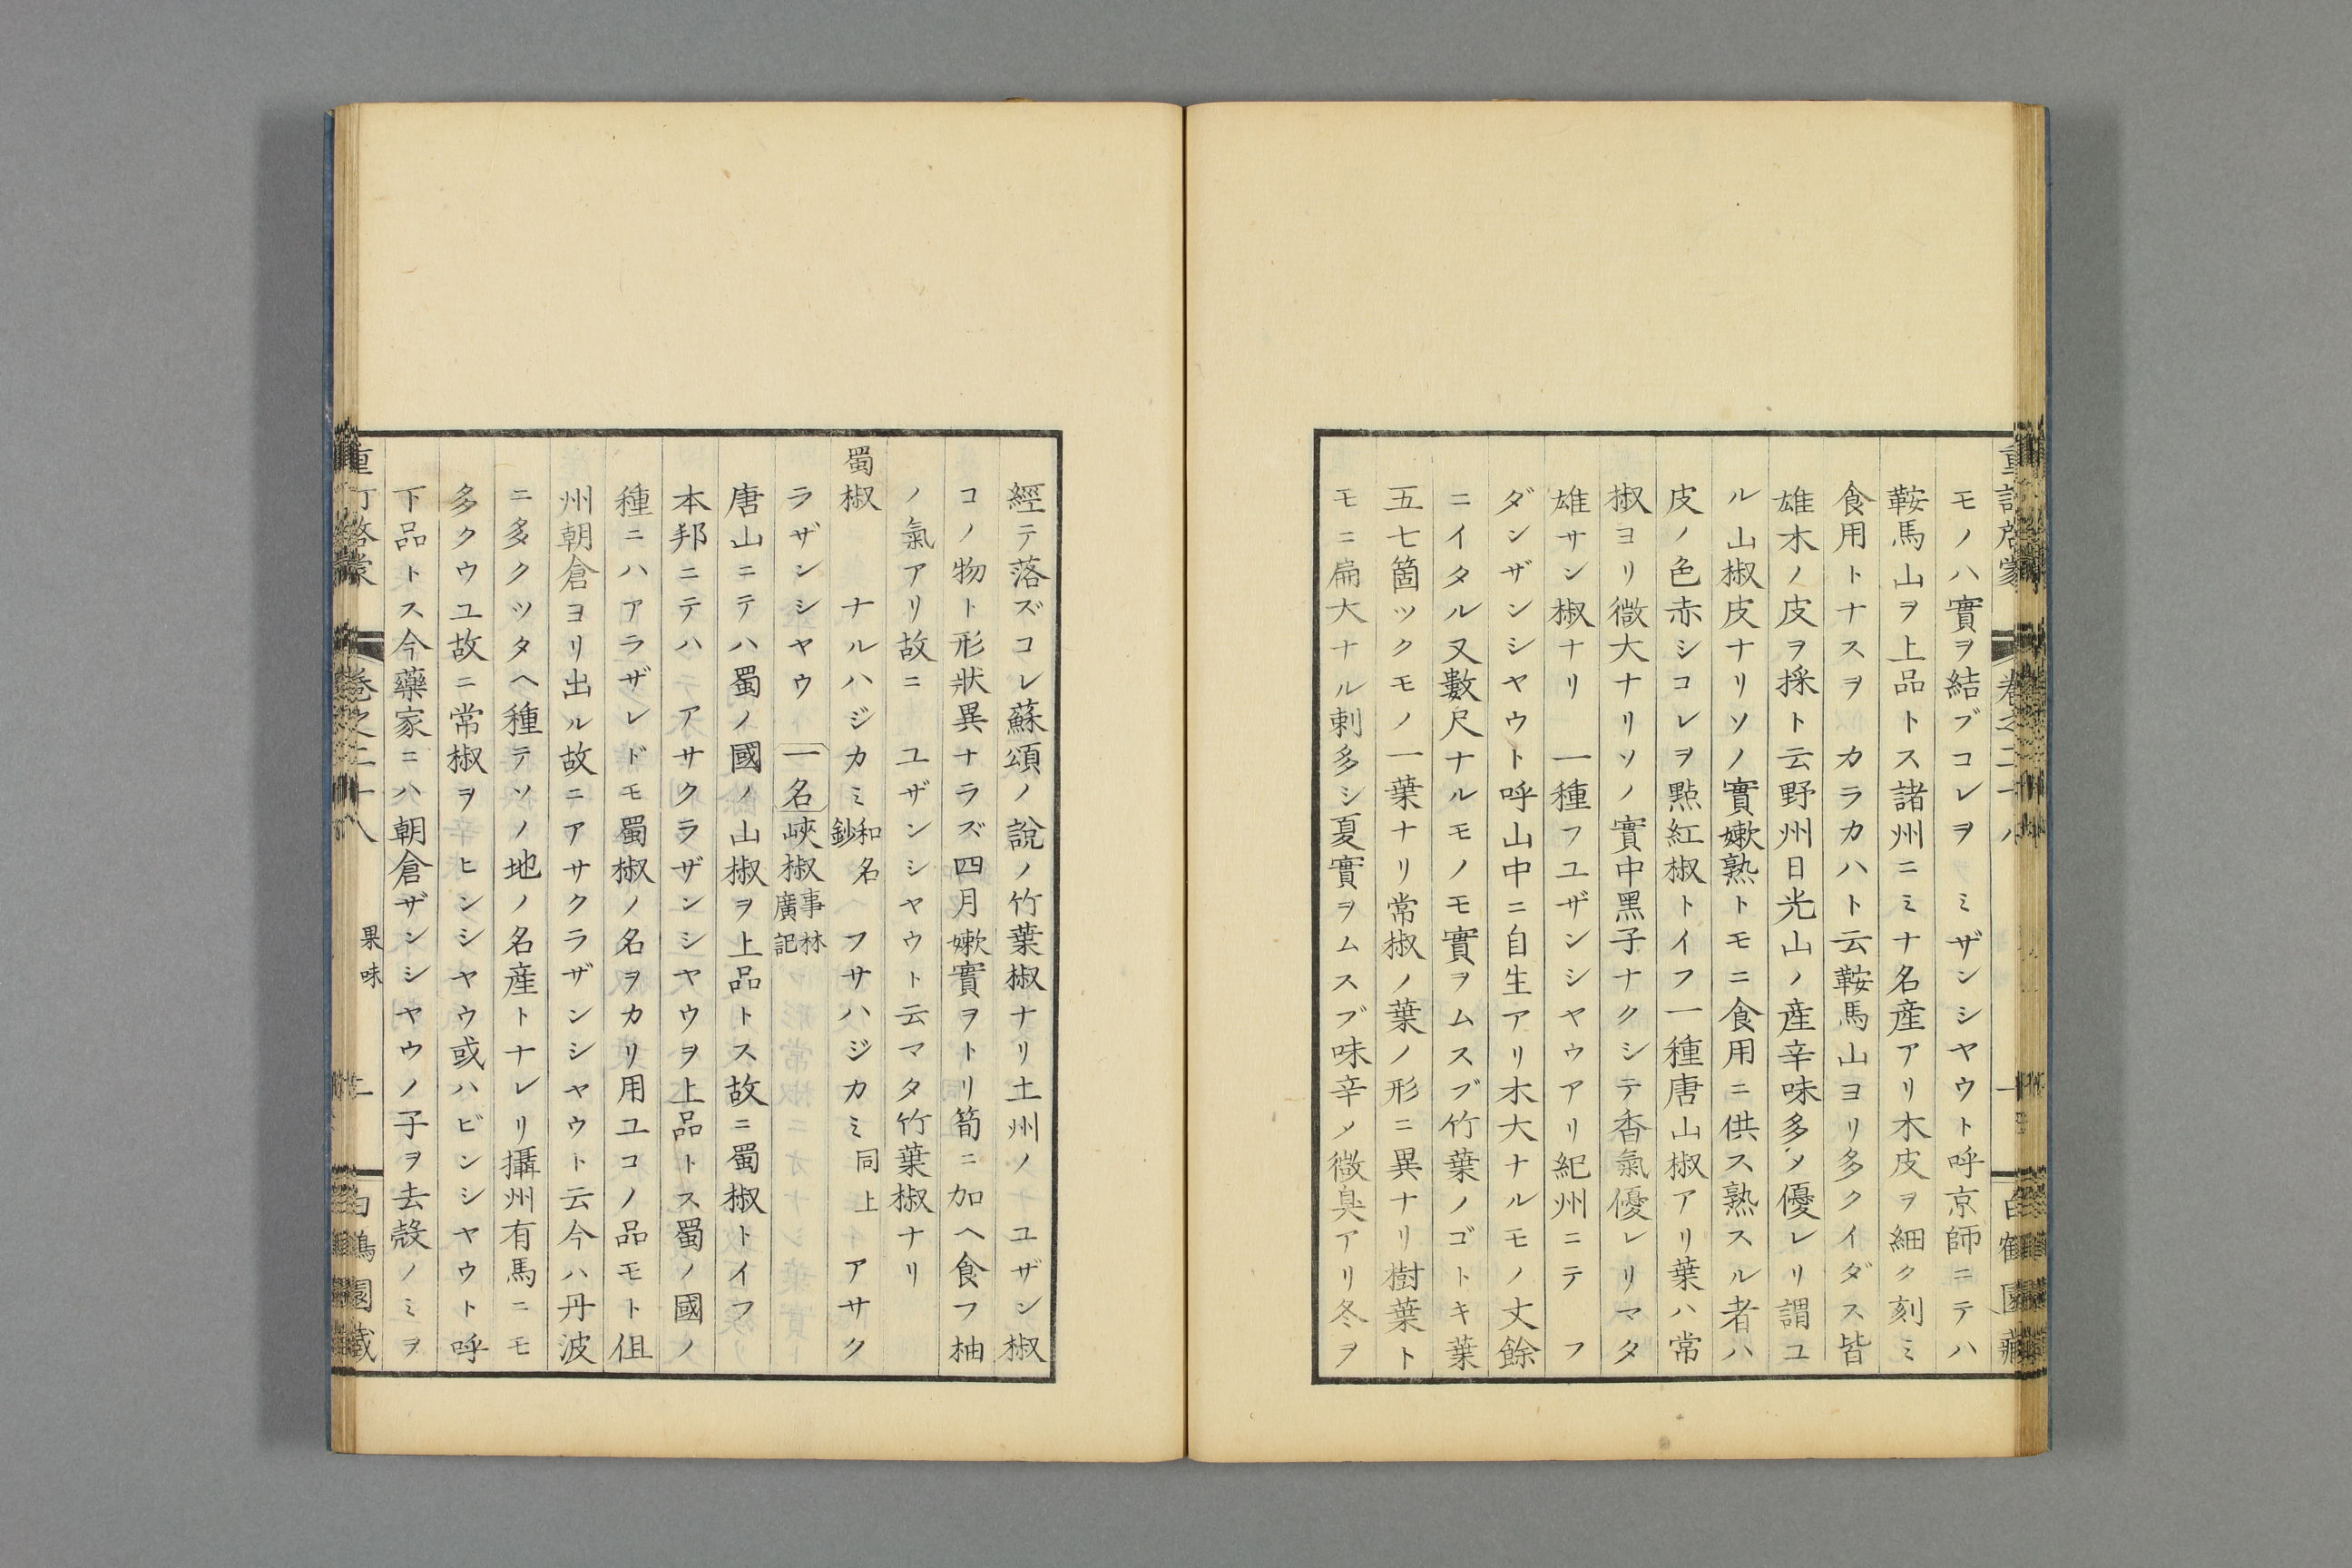 モノハ實ヲ結ブコレヲ ミザンシヤウト呼京師ニテハ
鞍馬山ヲ上品トス諸州ニミナ名産アリ木皮ヲ細ク刻ミ
食用トナスヲ カラカハト云鞍馬山ヨリ多クイダス皆
雄木ノ皮ヲ採ト云野州日光山ノ産辛味多ソ優レリ謂ユ
ル山椒皮ナリソノ實嫩熟トモニ食用ニ供ス熟スル者ハ
皮ノ色赤シコレヲ㸃紅椒トイフ一種唐山椒アリ葉ハ常
椒ヨリ微大ナリソノ實中黑子ナクシテ香氣優レリマタ
雄サン椒ナリ 一種フユザンシヤウアリ紀州ニテ フ
ダンザンシヤウト呼山中ニ自生アリ木大ナルモノ丈餘
ニイタル又數尺ナルモノモ實ヲムスブ竹葉ノゴトキ葉
五七箇ツクモノ一葉ナリ常椒ノ葉ノ形ニ異ナリ樹葉ト
モニ扁大ナル刺多シ夏實ヲムスブ味辛ソ微臭アリ冬ヲ
經テ落ズコレ蘇頌ノ說ノ竹葉椒ナリ土州ノ ユザン椒
コノ物ト形狀異ナラズ四月嫩實ヲトリ筍ニ加ヘ食フ柚
ノ氣アリ故ニ ユザンシヤウト云マタ竹葉椒ナリ
蜀椒 ナルハジカミ和名鈔 フサハジカミ同上 アサク
ラザンシヤウ 一名峽椒事林廣記
唐山ニテハ蜀ノ國ノ山椒ヲ上品トス故ニ蜀椒トイフ
本邦ニテハ アサクラザンシヤウヲ上品トス蜀ノ國ノ
種ニハアラザレドモ蜀椒ノ名ヲカリ用ユコノ品モト但
州朝倉ヨリ出ル故ニアサクラザンシヤウト云今ハ丹波
ニ多クツタヘ種テソノ地ノ名産トナレリ攝州有馬ニモ
多クウユ故ニ常椒ヲ ヒンシヤウ或ハビンシヤウト呼
下品トス今藥家ニハ朝倉ザンシヤウノ子ヲ去殼ノミヲ
卷之二十八
果味